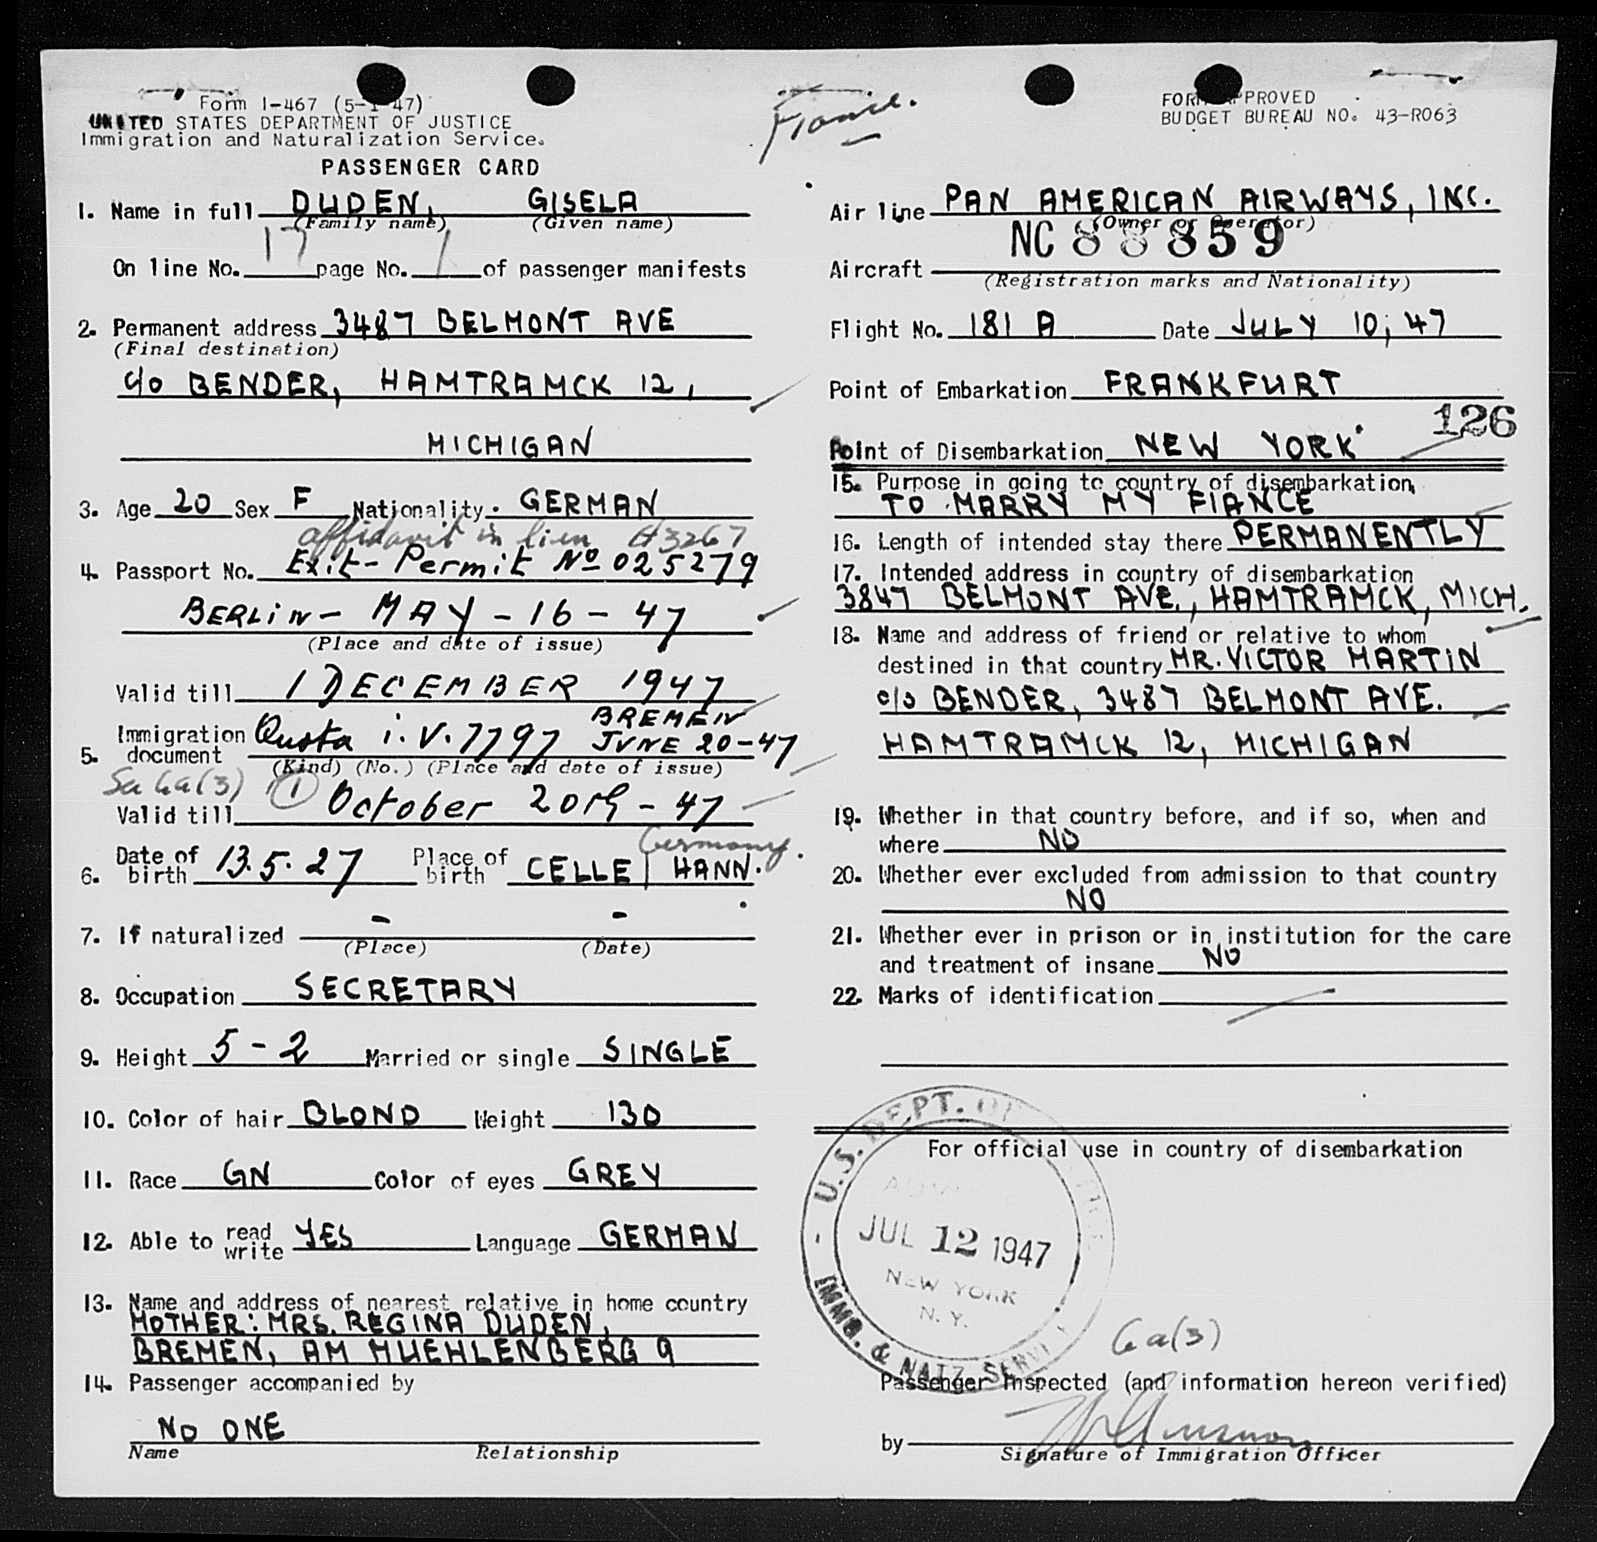 Form I-467 (5-1-47)
UNITED STATES DEPARTMENT OF JUSTICE
Immigration and Naturalization Service.
PASSENGER CARD
1. Name in full DUDEN, GISELA
(Family name) (Given name)
On line No. 17 page No. 1 of passenger manifests
2. Permanent address 3487 BELMONT AVE
(Final destination)
c/o BENDER, HAMTRAMCK 12,
MICHIGAN
3. Age 20 Sex F Nationality. GERMAN
affidavit in lieu #3267
4. Passport No. Exit-Permit No 025279
BERLIN - MAY - 16 - 47
(Place and date of issue)
Valid till 1 DECEMBER 1947
BREMEN
5. Immigration document Quota i.V. 7797 JUNE 20-47
(Kind) (No.) (Place and date of issue)
Sec 6a(3) 1
Valid till October 20th - 47
Germany.
6. Date of birth 13.5.27 Place of birth CELLE / HANN.
7. If naturalized - -
(Place) (Date)
8. Occupation SECRETARY
9. Height 5-2 Married or single SINGLE
10. Color of hair BLOND Weight 130
11. Race GN Color of eyes GREY
12. Able to read write YES Language GERMAN
13. Name and address of nearest relative in home country
MOTHER: MRS. REGINA DUDEN,
BREMEN, AM MUEHLENBERG 9
14. Passenger accompanied by
NO ONE
Name Relationship
Fiance.
FORM APPROVED
BUDGET BUREAU NO. 43-R063
Air line PAN AMERICAN AIRWAYS, INC.
(Owner or Operator)
Aircraft NC 88859
(Registration marks and Nationality)
Flight No. 181 A Date JULY 10, 47
Point of Embarkation FRANKFURT
126
Point of Disembarkation NEW YORK
15. Purpose in going to country of disembarkation,
TO MARRY MY FIANCE
16. Length of intended stay there PERMANENTLY
17. Intended address in country of disembarkation
3847 BELMONT AVE., HAMTRAMCK, MICH.
18. Name and address of friend or relative to whom
destined in that country MR. VICTOR MARTIN
c/o BENDER, 3487 BELMONT AVE.
HAMTRAMCK 12, MICHIGAN
19. Whether in that country before, and if so, when and
where NO
20. Whether ever excluded from admission to that country
NO
21. Whether ever in prison or in institution for the care
and treatment of insane NO
22. Marks of identification
For official use in country of disembarkation
U.S. DEPT. OF
JUL 12 1947
NEW YORK
N.Y.
IMMG. & NATZ. SERV.
6a(3)
Passenger Inspected (and information hereon verified)
by
Signature of Immigration Officer